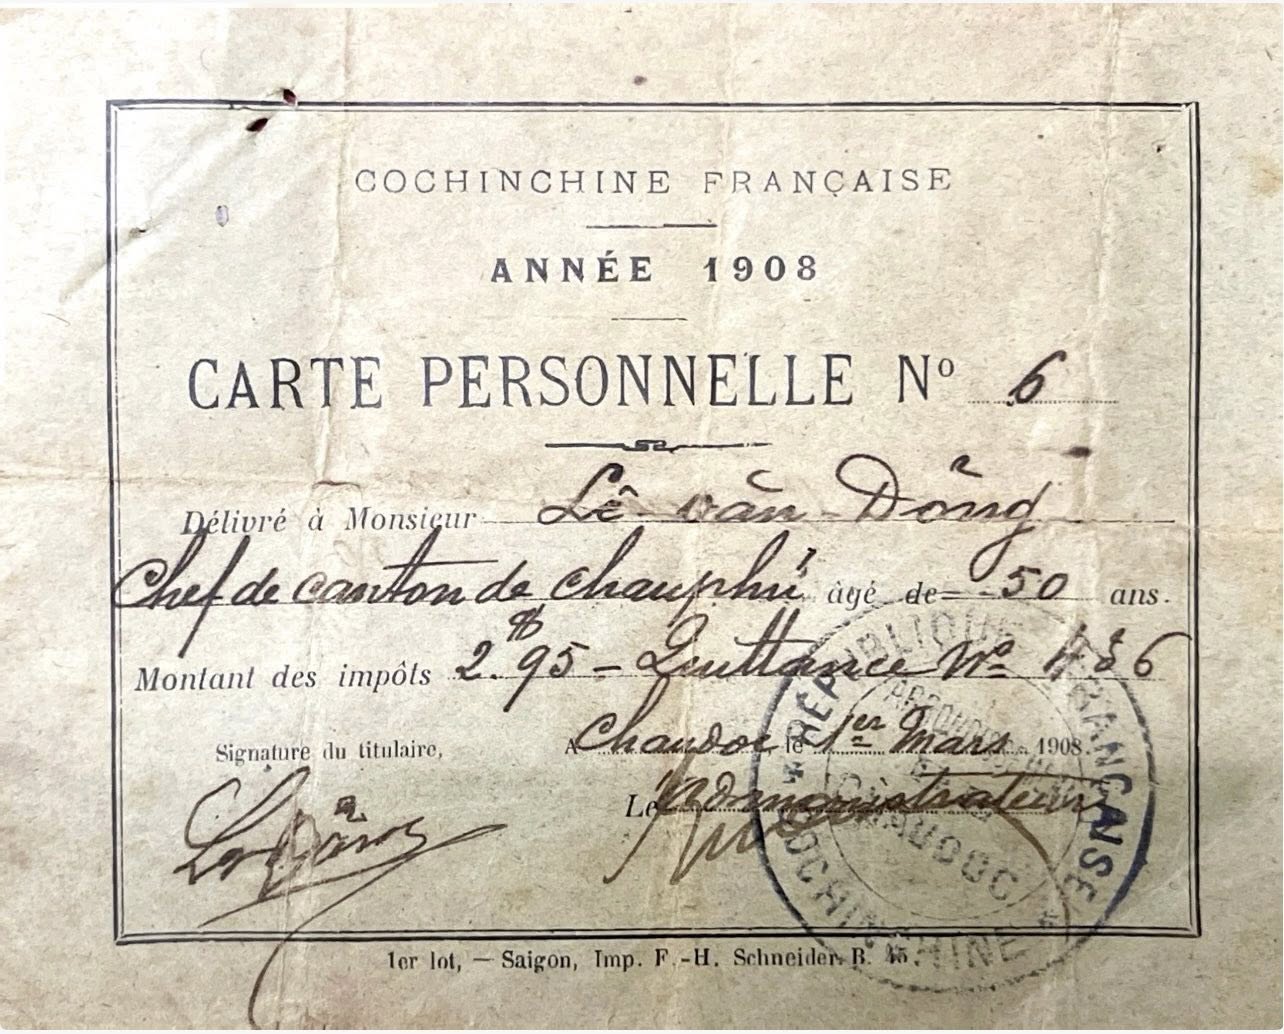 COCHINCHINE FRANÇAISE
ANNÉE 1908
CARTE PERSONNELLE Nº 6
Délivré à Monsieur Lê văn Dỏng
Chef de canton de Chauphú âgé de 50 ans.
Montant des impôts 2.$95 - Quittance Nº 486
Signature du titulaire, A Chaudoc, le 1er Mars 1908.
Le Administrateur
RÉPUBLIQUE FRANÇAISE
ARRONDISSEMENT DE CHAUDOC
* COCHINCHINE *
1er lot, — Saigon, Imp. F.-H. Schneider. B. 45.